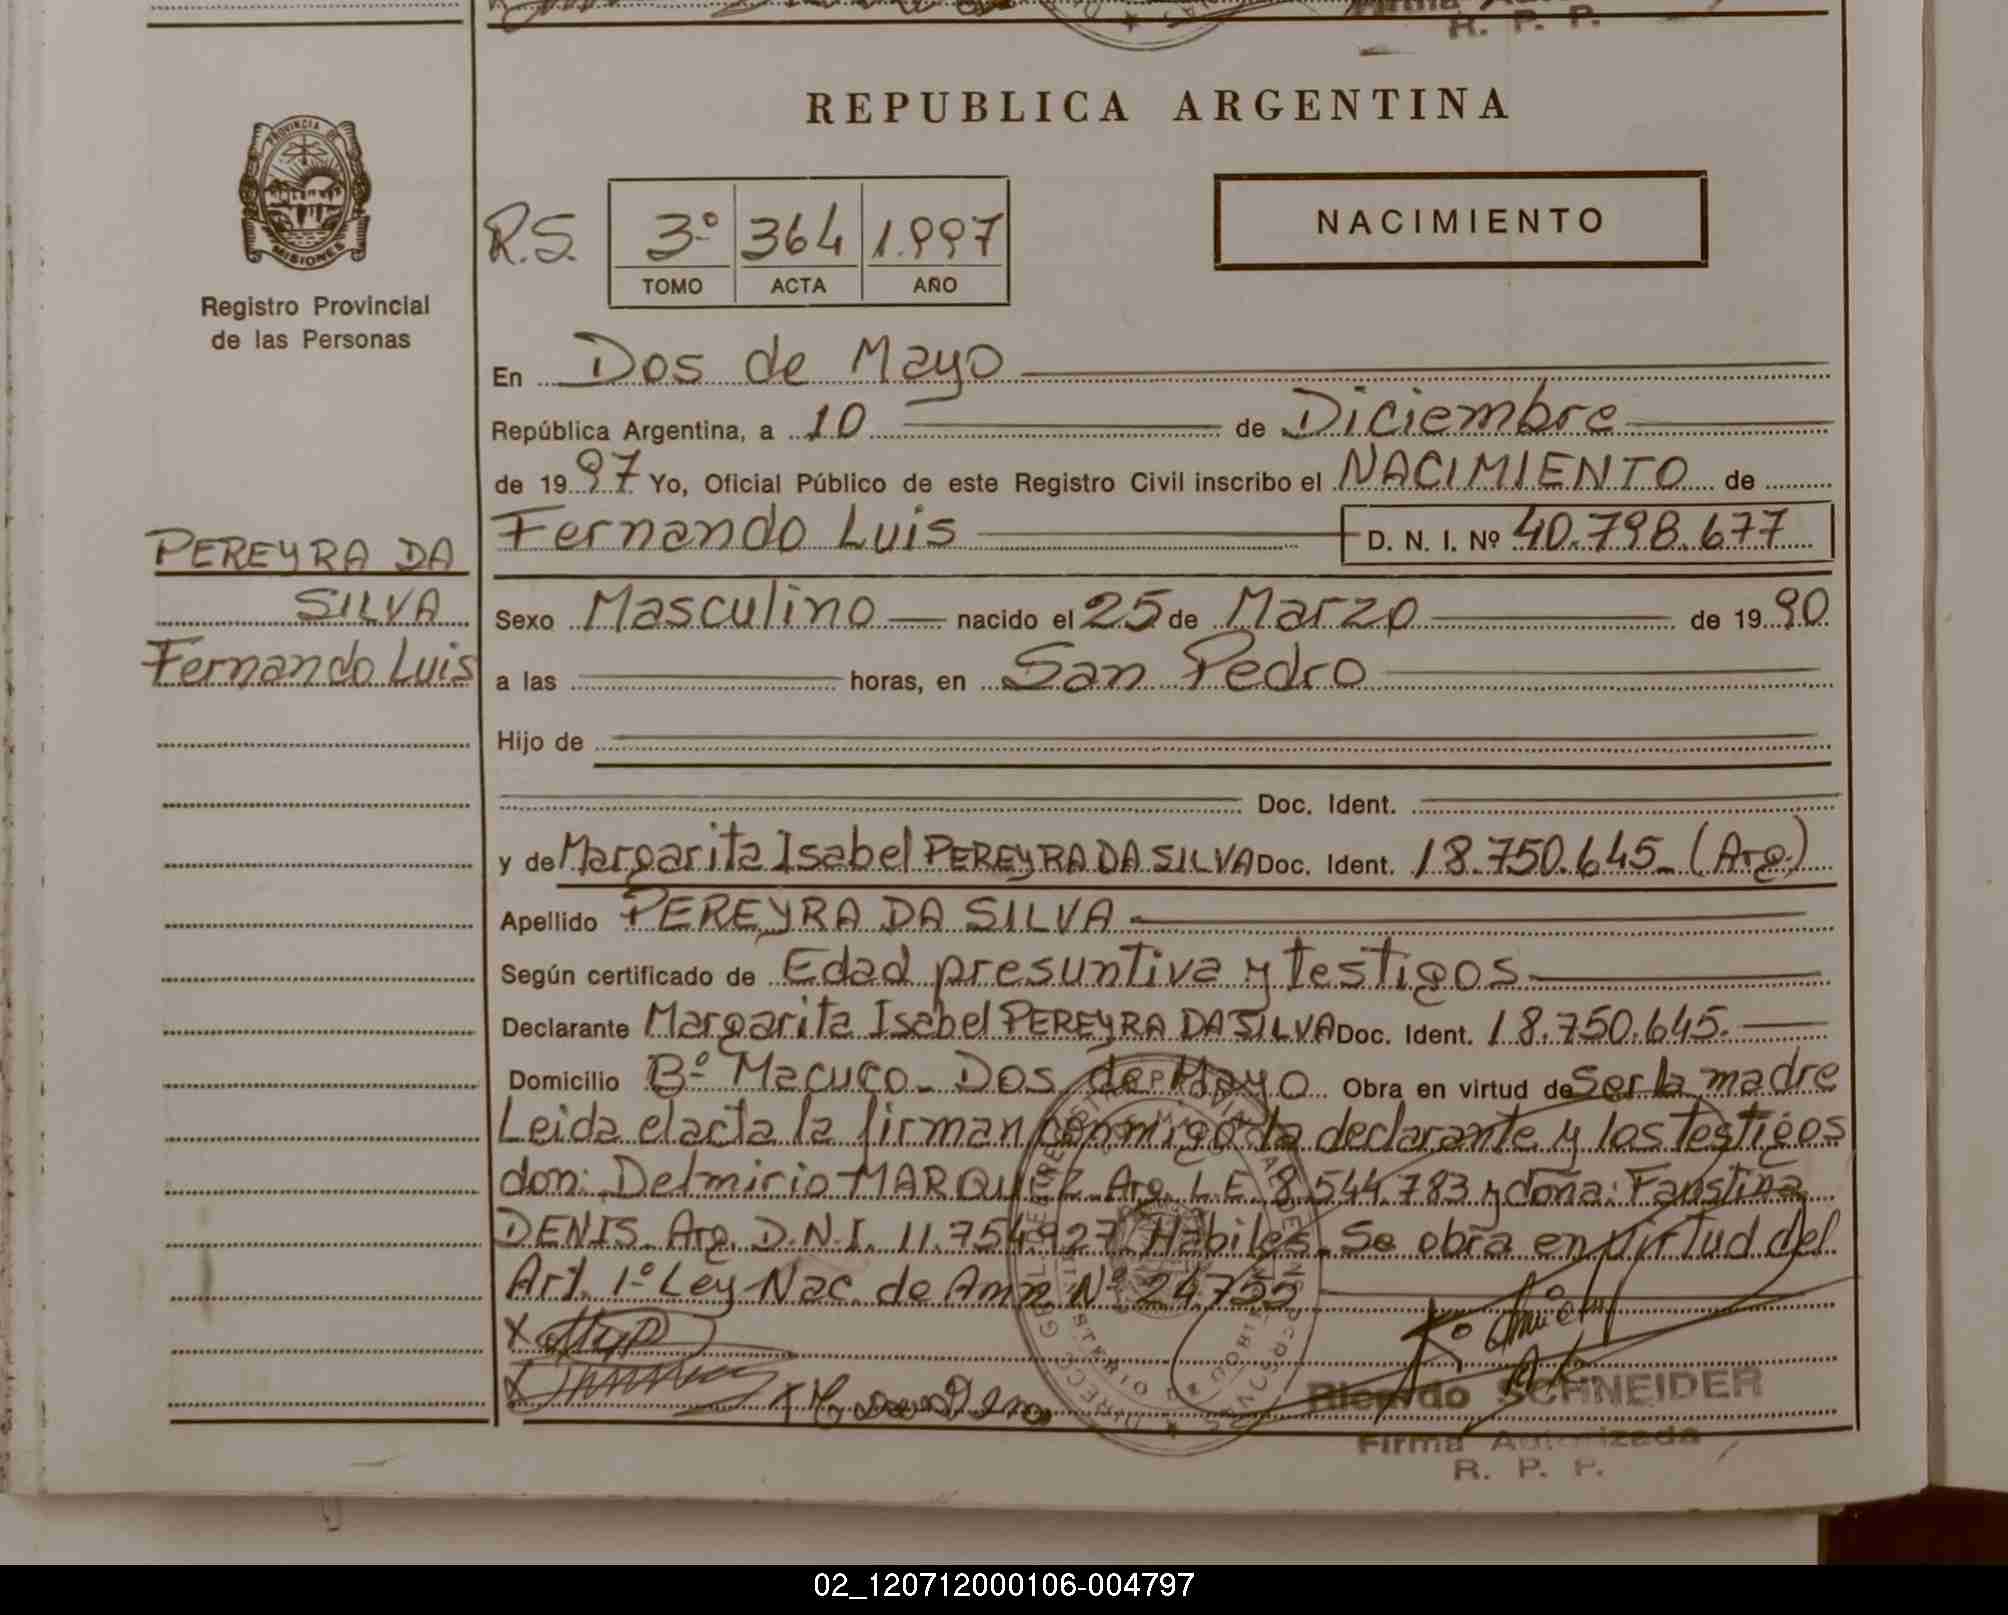 R. P. P.
PROVINCIA DE
MISIONES
Registro Provincial
de las Personas
REPUBLICA ARGENTINA
NACIMIENTO
R.S. 3º 364 1.997
TOMO ACTA AÑO
En Dos de Mayo
República Argentina, a 10 de Diciembre
de 1997 Yo, Oficial Público de este Registro Civil inscribo el NACIMIENTO de
PEREYRA DA
SILVA
Fernando Luis
Fernando Luis D. N. I. Nº 40.798.677
Sexo Masculino nacido el 25 de Marzo de 1990
a las horas, en San Pedro
Hijo de
Doc. Ident.
y de Margarita Isabel PEREYRA DA SILVA Doc. Ident. 18.750.645 (Arg.)
Apellido PEREYRA DA SILVA
Según certificado de Edad presuntiva y testigos
Declarante Margarita Isabel PEREYRA DA SILVA Doc. Ident. 18.750.645.
Domicilio Bº Macuco - Dos de Mayo Obra en virtud de Ser la madre
Leida el acta la firman conmigo la declarante y los testigos
don: Delmirio MARQUEZ Arg. L.E. 8.544.783 y doña: Faustina
DENIS. Arg. D.N.I. 11.754.927 Hábiles. Se obra en virtud del
Art. 1º Ley Nac. de Amn. Nº 24.755
Ricardo SCHNEIDER
Firma Autorizada
R. P. P.
02_120712000106-004797